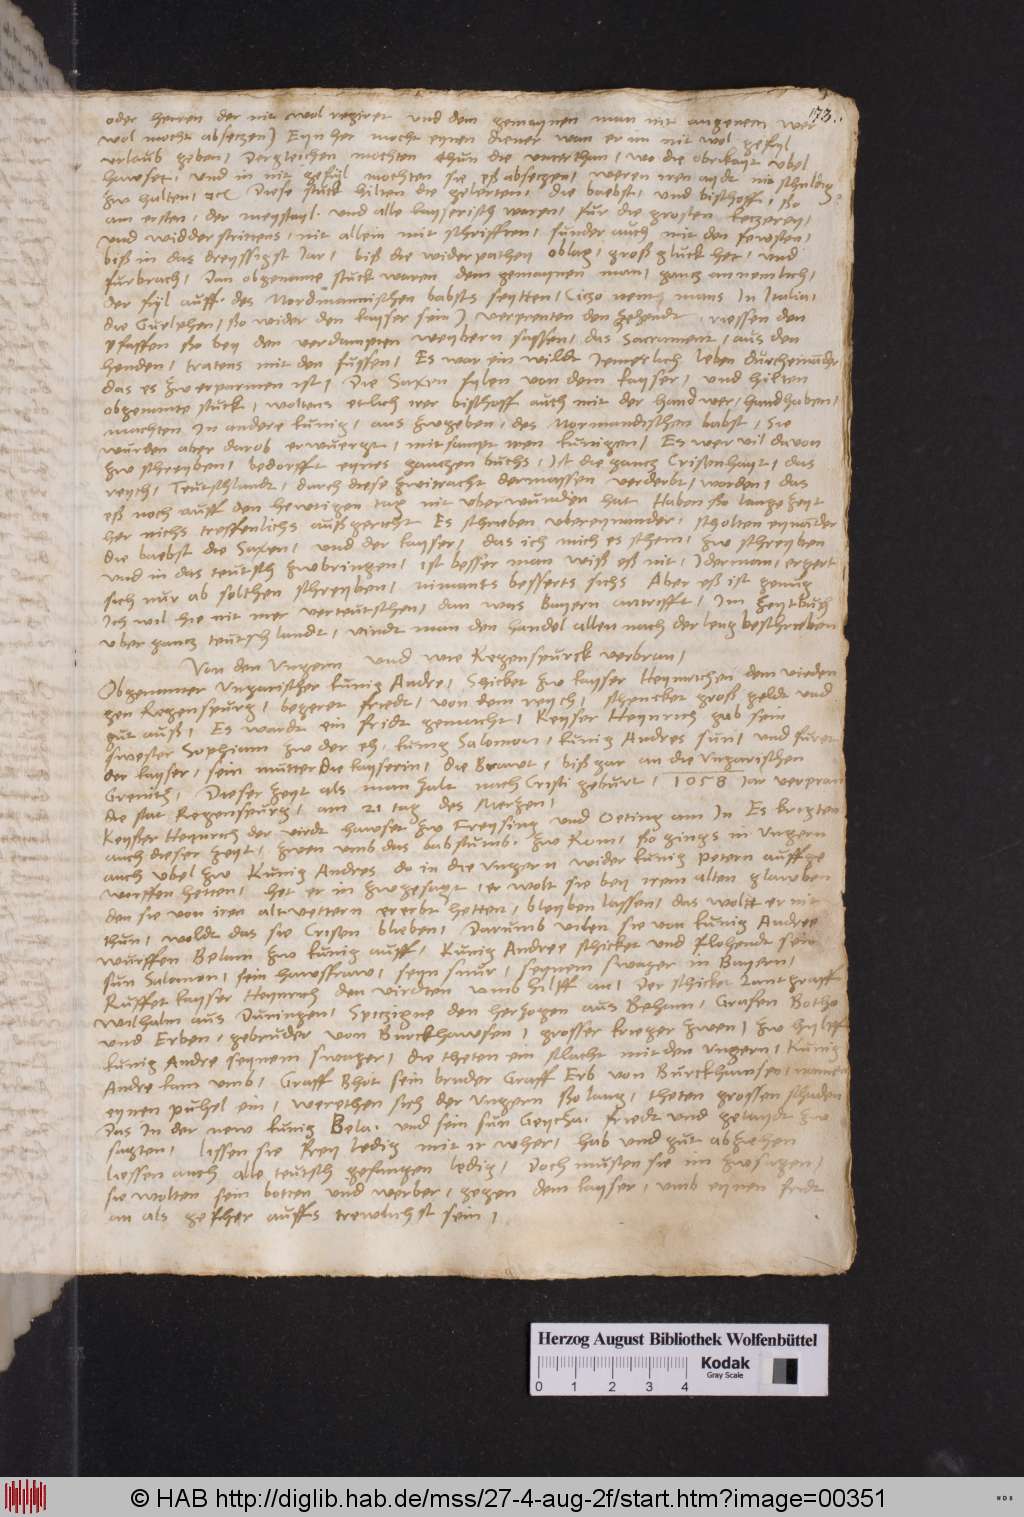 173.
oder herren der nit wol regiret und dem gemaynen man nit angenem wer
wol mocht absetzen) Eyn her mocht eynen diener wan er im nit wol gefyl
urlaub geben / Dergleichen mochten thun die unterthan / wo die obrikayt ubel
hawset / und in nit gefyl mochten sie eß absetzen / weren iren aydt nit schuldig
zw halten / Diese stuck hilten die gelerten / die baebst / und bisthoff / ßo
am ersten / der meystayl und alle kayserisch waren / fur die grosten ketzerey /
und widderstrittens / nit allein mit schrifften / sunder auch mit den fewsten /
biß in das dreyssigst Jar / biß die widerpathey oblag / groß gluck het / und
furbrach / Dan obgenante stuck waren dem gemaynen man / gantz annemlich /
der fyl auff des Nordmannischen babsts seytten / mans In Italia /
die Guelphen / ßo wider den kayser sein) verprenten den zehendt riessen den
pfaffen ßo bey den verdampten weybern sassen / das Sacrament / aus den
henden / tratens mit den fussen / Es war ein wildt Jemerlich leben durcheinander
das es zw erparmen ist / Die Saxen fylen von dem kayser / und hilten
obgenante stuck / woltens etlich irer bisthoff auch mit der handwer / handhaben /
machten In andere kunig / aus zwgeben / des Normandischen babst / Sie
wurden aber darob erwuergt / mitsampt iren kunigen / Es wer vil davon
zw schreyben / bedorfft eynes gantzen buchs / Ist die gantz Cristenhayt / das
reych / Teutschlandt / durch diese zwitracht dermassen verderbt / worden / das
eß noch auff den hewtigen tag nit uberwunden hat Haben ßo lange zeyt
her nichs treffenlichs außgericht Es schrieben ubereynander / scholten eynander
die baebst die Saxen / und der kayser / das ich mich es schem / zw schreyben
und in das teutsch zwbringen / ist besser man wiß eß nit / Iderman / ergert
sich nur ab solchen schreyben / nimants besserts sichs Aber eß ist genug
Ich wil hie nit mer verteutschen / dan was Bayern antrifft / Im zeytbuch
uber gantz teutschlandt / vindt man den handel allen nach der leng beschrieben
Von den Ungern und wie Regenspurck verbran /
Obgenanter Ungarischer kunig Andre / Schicket zw kayser Heynrichen dem vierden
gen Regenspurg / begeret friedt / von dem reych / schencket groß geldt und
gut auß / Es wardt ein fridt gemacht / Keyser Heynrich gab sein
swester Sophiam zw der eh / kunig Salomon / kunig Andres sun / und furet
der kayser / sein mutter die kayserin / die Brawt / biß gar an die Ungarischen
Grenitz / Dieser zeyt als man zalt nach Cristi geburt / 1058 Jar verpran
die stat Regenspurg / am 21 tag des Mertzen /
Keyser Heynrich der vierdt hawset zw Freysing und Oeting am In Es krigten
auch dieser zeyt / zwen umb das babstumb zw Rom / ßo gings in Ungern
auch ubel zw Kunig Andres do in die Ungern wider kunig Petern auffge
worffen hetten / het er in zwgesagt / er wolt sie bey irem alten glawben
den sie von iren altvettern ererbt hetten / bleyben lassen / das wollt er nit
thun / woldt das sie Cristen blieben / Darumb vilen sie von kunig Andree
wurffen Belam zw kunig auff / Kunig Andree schicket und flohendt sein
sun Salomon / sein hawsfraw / seyn snur / seynem swager in Bayern /
Ruffet kayser Heynrich den virdten umb hilff an / Der schicket Lantgraff
Wilhalm aus Duringen / Spitzigne den hertzogen aus Beham / Grafen Botho
und Erben / gebruder von Burckhawsen / grosser krieger zwen / zw hylff
kunig Andre seynem swager / die theten ein slacht mit den Ungern / Kunig
Andre kam umb / Graff Bhot sein bruder Graff Erb von Burckhausen / namen
eynen puhel ein / werethen sich der Ungern ßo lang / theten grossen schaden
Das In der new kunig Bela / und sein sun Geycha friedt und gelaydt zw
sagten / liessen sie frey ledig mit ir wher / hab und gut abziehen
liessen auch alle teutsch gefangen ledig / Doch musten sie im zwsagen /
sie wolten sein botten und werber / gegen dem kayser / umb eynen fridt
an als gefher auffs trewlichst sein /
Herzog August Bibliothek Wolfenbüttel
0 1 2 3 4
Kodak
Gray Scale
© HAB http://diglib.hab.de/mss/27-4-aug-2f/start.htm?image=00351